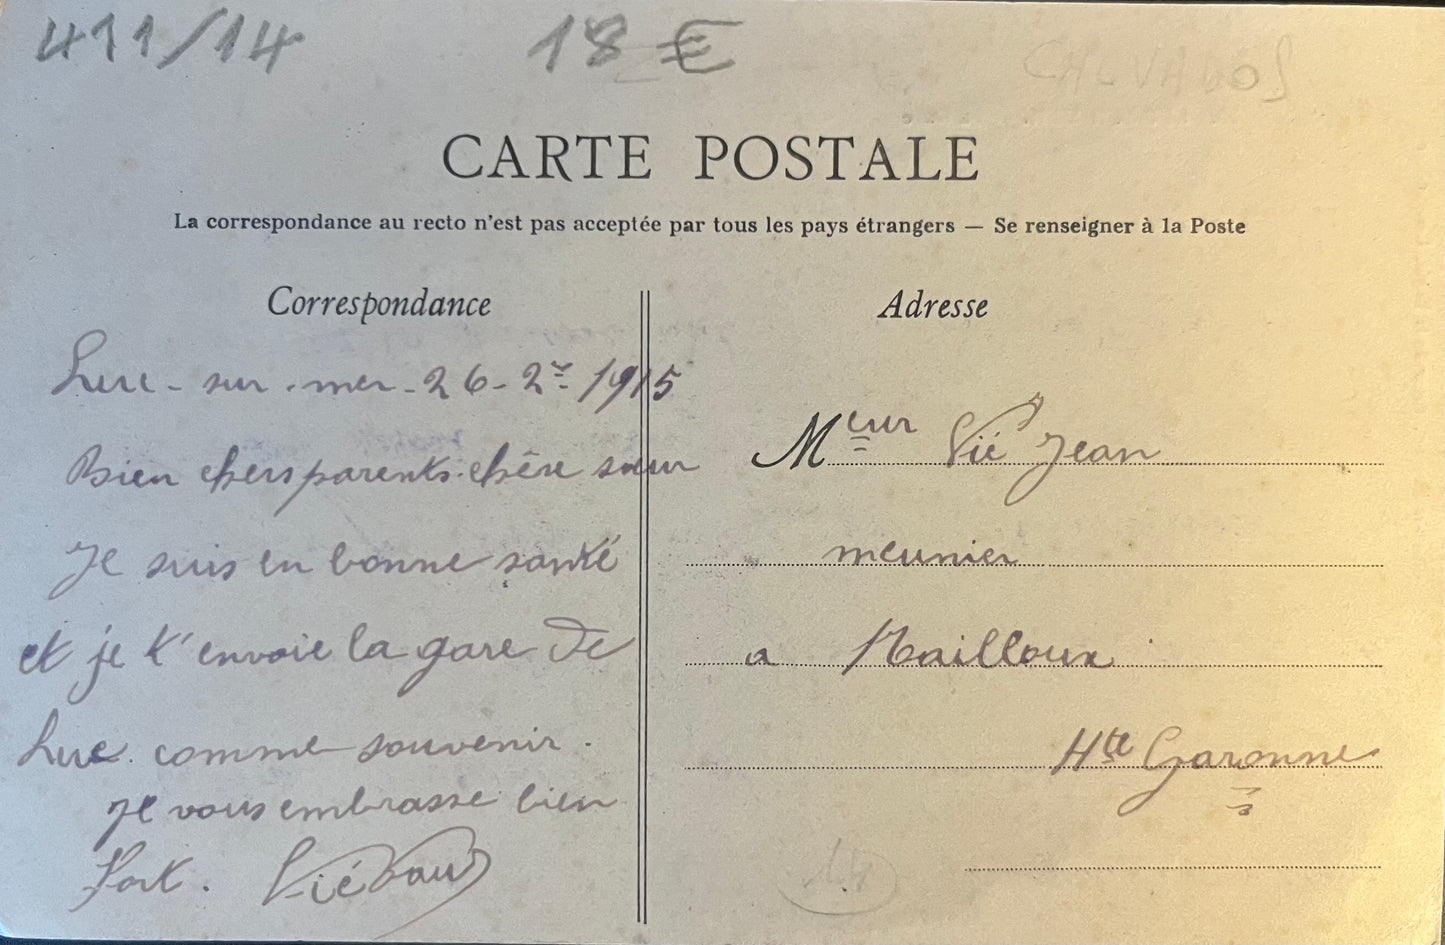 411/14 18 €
CALVADOS
CARTE POSTALE
La correspondance au recto n'est pas acceptée par tous les pays étrangers — Se renseigner à la Poste
Correspondance
Luc - sur - mer - 26 - 2er 1915
Bien chers parents chère sœur
Je suis en bonne santé
et je t'envoie la gare de
Luc comme souvenir.
je vous embrasse bien
fort. Vié
Adresse
Meur Vié Jean
meunier
a Nailloux
Hte Garonne
14